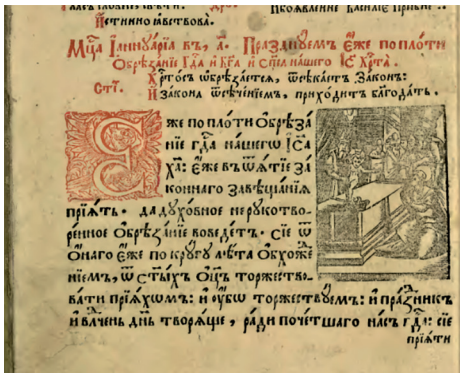 И҆стинно ꙗ҆вствова.
Мц҃а І҆аннꙋарїа въ, а҃. Празднꙋемъ є҆́же по плоти
Обрѣзанїе Гд҃а и҆ Бг҃а и҆ Сп҃са нашего І҆С Хрт҃а.
Стї. Хрⷭ҇тосъ ѡ҆брѣзаетсѧ, ѿсѣкаетъ Законъ:
И҆ Закона ѿсѣченїемъ, приходитъ благодать.
Є҆же по плоти Ѻбрѣза
нїе гд҃а нашегѡ І҆С҃а
хⷭ҇а: є҆́же въ ѿѧтїе за
коннагѡ завѣщанїѧ
прїѧтъ. да дꙋховное нерꙋкотво-
ренное ѻбрѣзанїе воведетъ. сїе ѿ
ѻнаго є҆́же по крꙋгꙋ лѣта ѻбхоже҆
нїемъ, ѿ ст҃ыхъ ѻц҃ъ торжество-
вати прїѧхомъ: и҆ ᲂу҆бѡ торжествꙋемъ: и҆ праздникъ
и҆ влⷣчень дн҃ь творѧще, ради почетшаго насъ гд҃а: сїе
прїѧти